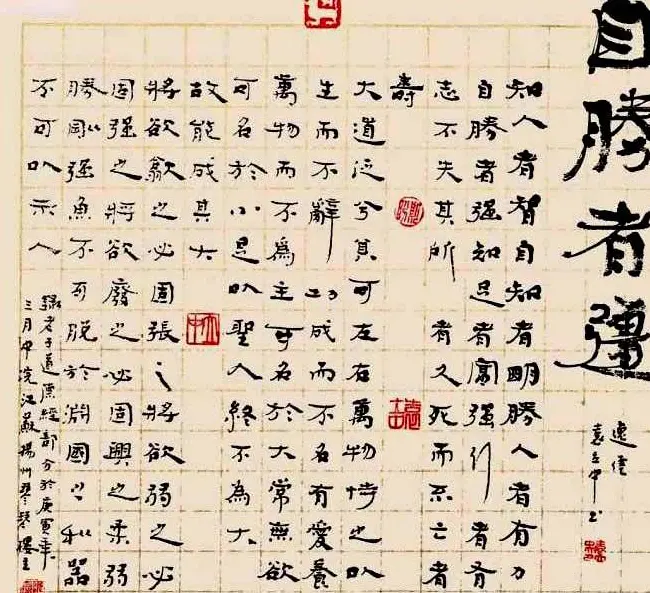 自勝者彊
知人者智自知者明勝人者有力
自勝者強知足者富強行者有
志不失其所者久死而不亡者
壽
大道泛兮其可左右萬物恃之以
生而不辭功成而不名有愛養
萬物而不為主可名於大常無欲
可名於小是以聖人終不為大
故能成其大
將欲歙之必固張之將欲弱之必
固强之將欲廢之必固興之柔弱
勝剛强魚不可脫於淵國之利器
不可以示人
錄老子道德經部分於庚寅年
三月中浣江蘇揚州琴樓主